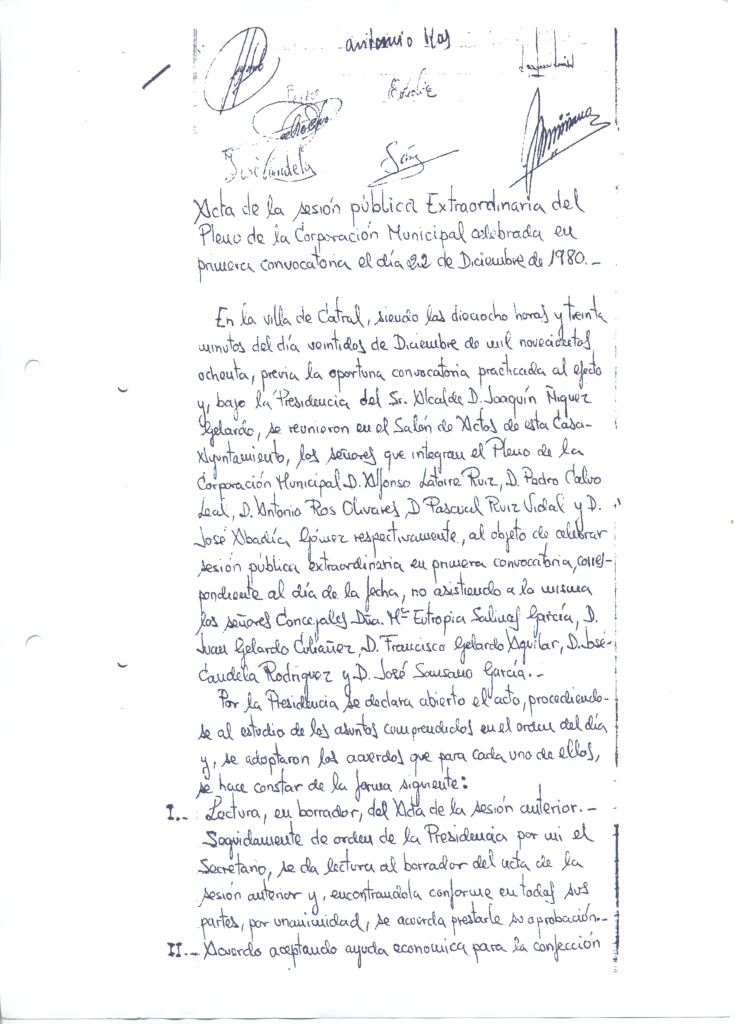 antonio Ros
José Candela
Acta de la sesión pública Extraordinaria del
Pleno de la Corporación Municipal celebrada en
primera convocatoria el día 22 de Diciembre de 1980.-
En la villa de Catral, siendo las dieciocho horas y treinta
minutos del día veintidos de Diciembre de mil novecientos
ochenta, previa la oportuna convocatoria practicada al efecto
y, bajo la Presidencia del Sr. Alcalde D. Joaquín Ñiguez
Gelardo, se reunieron en el Salón de Actos de esta Casa-
Ayuntamiento, los señores que integran el Pleno de la
Corporación Municipal D. Alfonso Latorre Ruiz, D. Pedro Calvo
Leal, D. Antonio Ros Olivares, D Pascual Ruiz Vidal y D.
José Abadía Gómez respectivamente, al objeto de celebrar
sesión pública extraordinaria en primera convocatoria, corres-
pondiente al día de la fecha, no asistiendo a la misma
los señores Concejales Dña. Mª Eutropia Salinas García, D.
Juan Gelardo Culiañez, D. Francisco Gelardo Aguilar, D. José
Candela Rodriguez y D. José Sansano García.-
Por la Presidencia se declara abierto el acto, procediendo-
se al estudio de los asuntos comprendidos en el orden del día
y, se adoptaron los acuerdos que para cada uno de ellos,
se hace constar de la forma siguiente:
I.- Lectura, en borrador, del Acta de la sesión anterior.-
Seguidamente de orden de la Presidencia por mi el
Secretario, se da lectura al borrador del acta de la
sesión anterior y, encontrandola conforme en todas sus
partes, por unanimidad, se acuerda prestarle su aprobación.-
II.- Acuerdo aceptando ayuda economica para la confección